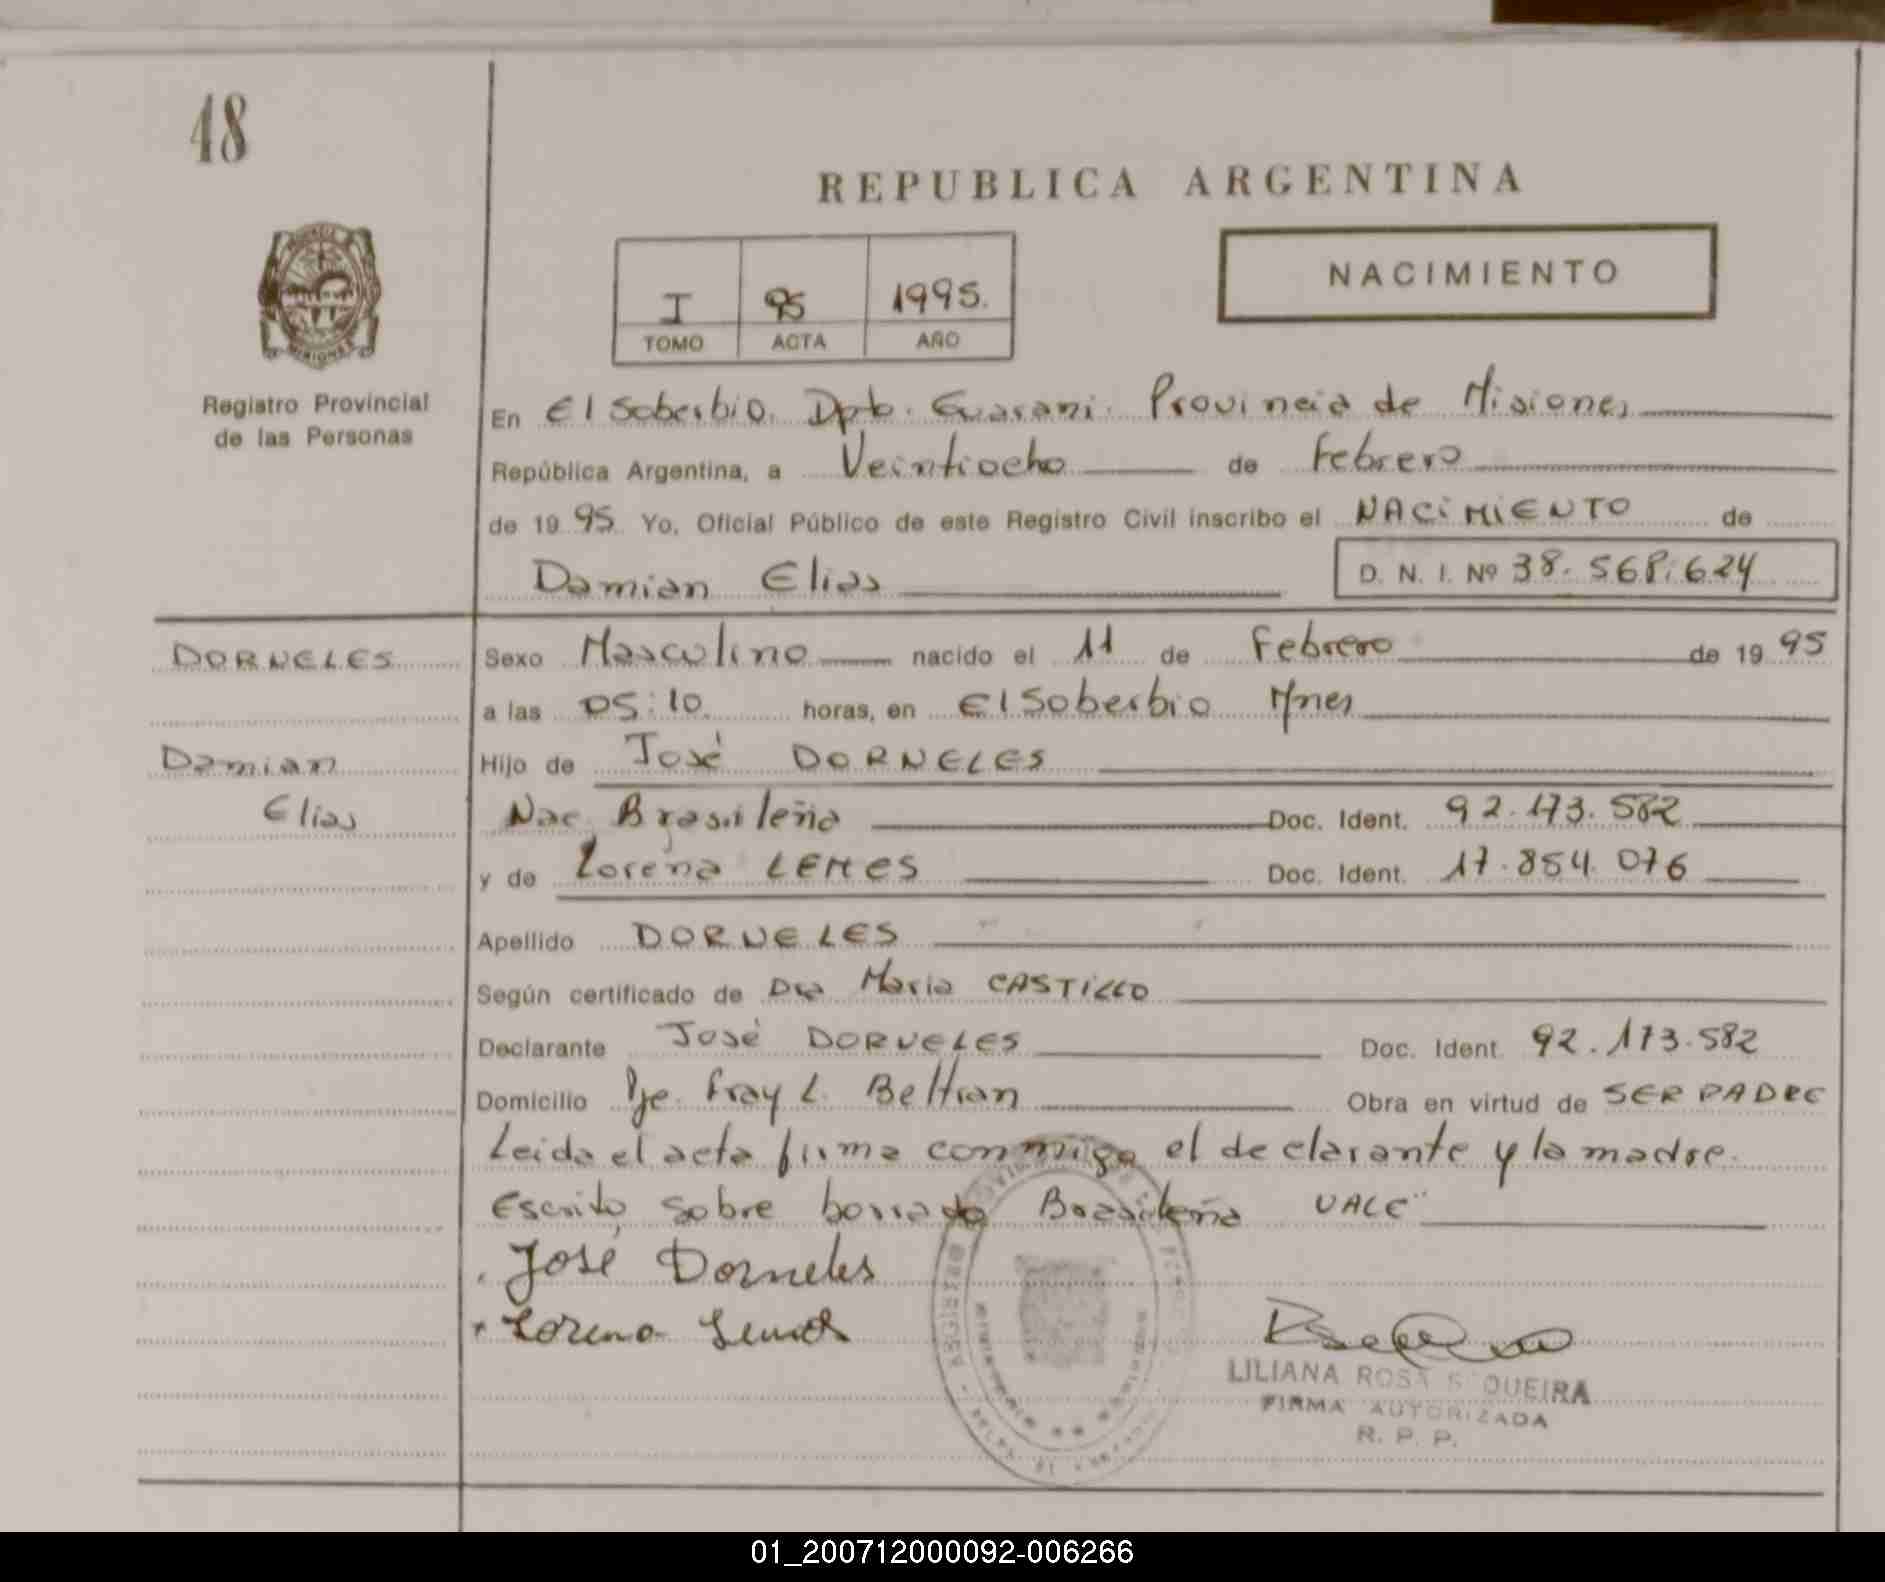 48
REPUBLICA ARGENTINA
I 95 1995.
TOMO ACTA AÑO
NACIMIENTO
Registro Provincial
de las Personas
En El Soberbio. Dpto. Guarani. Provincia de Misiones
República Argentina, a Veintiocho de Febrero
de 19 95 Yo, Oficial Público de este Registro Civil inscribo el NACIMIENTO de
Damian Elias D. N. I. Nº 38.568.624
DORNELES Sexo Masculino nacido el 11 de Febrero de 19 95
a las 05:10 horas, en El Soberbio Mnes
Damian Hijo de José DORNELES
Elias Nac. Brasileña Doc. Ident. 92.173.582
y de Lorena LEMES Doc. Ident. 17.854.076
Apellido DORNELES
Según certificado de Dra Maria CASTILLO
Declarante José DORNELES Doc. Ident. 92.173.582
Domicilio Pje. Fray L. Beltran Obra en virtud de SER PADRE
Leida el acta firma conmigo el declarante y la madre.
Escrito sobre borrado Brasileña VALE
José Dorneles
Lorena
LILIANA ROSA S QUEIRA
FIRMA AUTORIZADA
R. P. P.
01_200712000092-006266